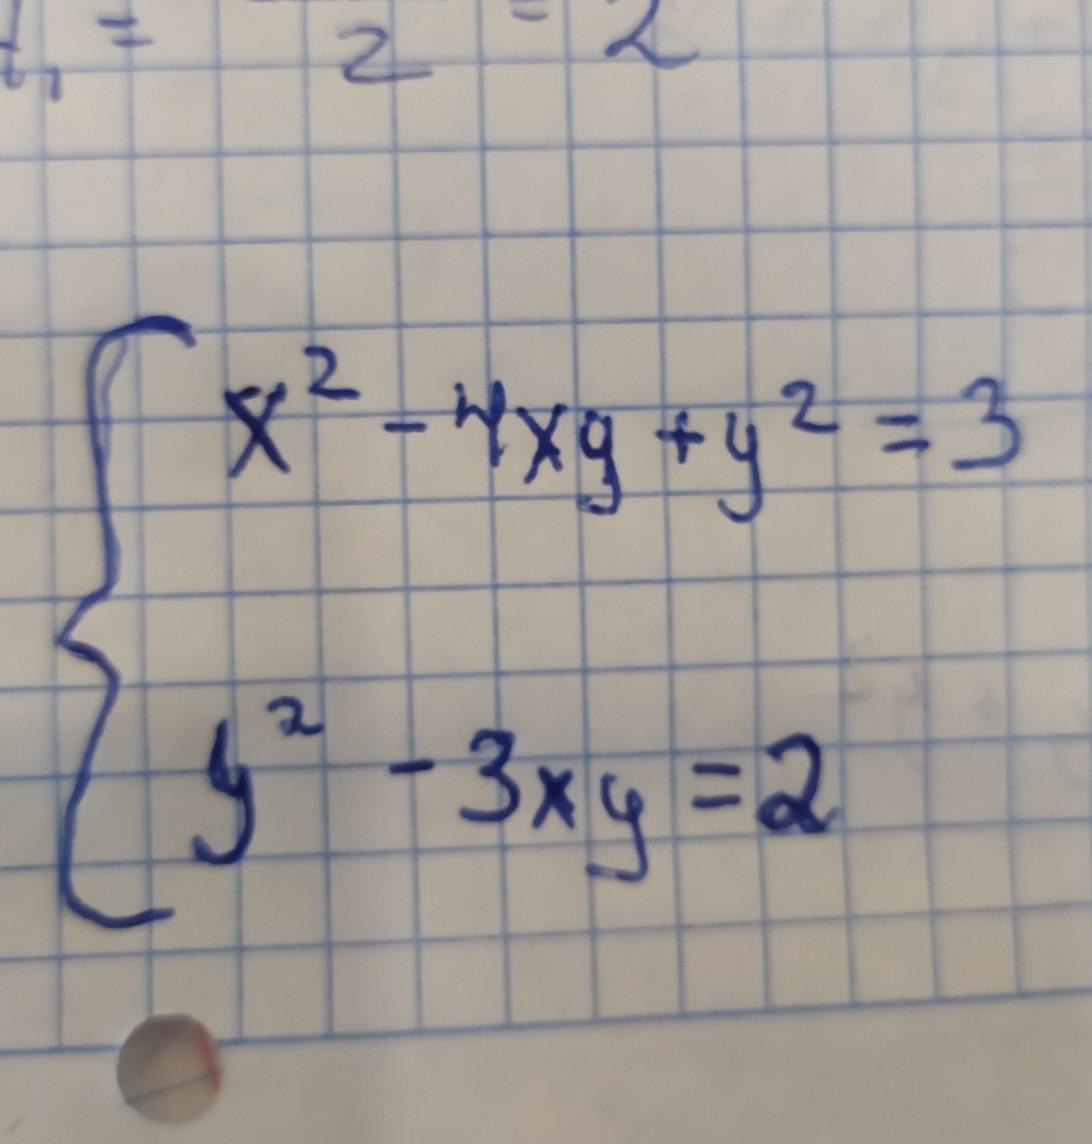 t₁ = 2 = 2
x² - 4xy + y² = 3
y² - 3xy = 2